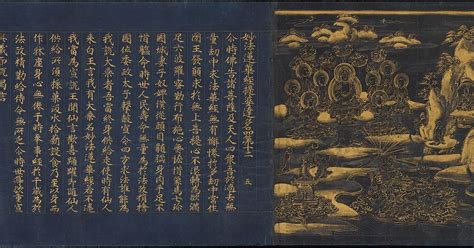 妙法蓮華經提婆達多品第十二　五
尒時佛告諸菩薩及天人四衆吾於過去無
量劫中求法華經無有懈惓於多劫中常作
國王發願求於無上菩提心不退轉為欲滿
足六波羅蜜勤行布施心無悋惜象馬七珎
國城妻子奴婢僕從頭目髓腦身肉手足不
惜軀命時世人民壽命無量為於法故捐捨
國位委政太子擊鼓宣令四方求法誰能為
我說大乘者吾當終身供給走使時有仙人
來白王言我有大乘名妙法蓮華經若不違
我當為宣說王聞仙言歡喜踊躍即隨仙人
供給所須採菓汲水拾薪設食乃至以身而
作牀座身心無惓于時奉事經於千歲為於
法故精勤給侍令無所乏尒時世尊欲重宣
此義而說偈言